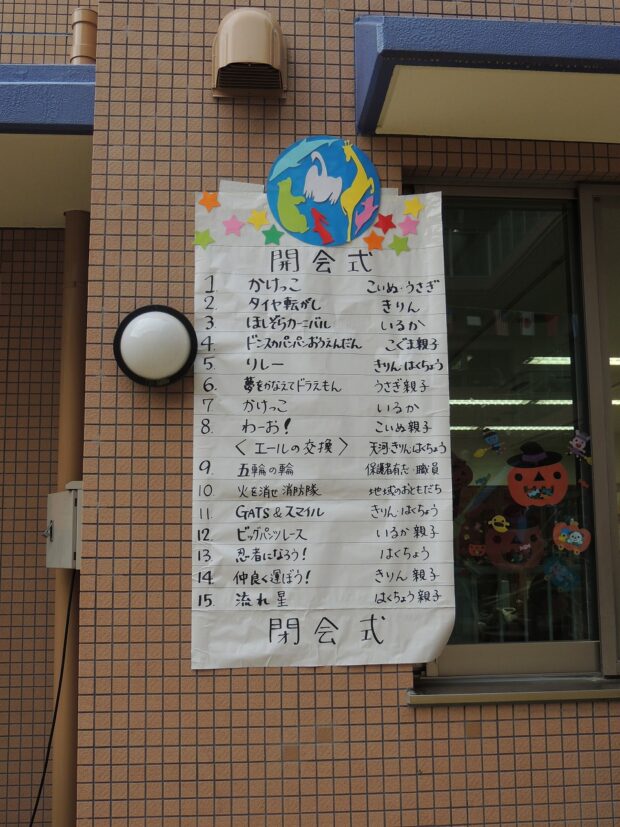 開会式
1 かけっこ こいぬ・うさぎ
2. タイヤ転がし きりん
3 ほしぞらカーニバル いるか
4. ドンスカパンパンおうえんだん こぐま親子
5. リレー きりん・はくちょう
6. 夢をかなえてドラえもん うさぎ親子
7 かけっこ いるか
8. わーお! こいぬ親子
〈エールの交換〉 天河・きりん・はくちょう
9. 五輪の輪 保護者有志・職員
10. 火を消せ 消防隊 地域のおともだち
11. GATS&スマイル きりん・はくちょう
12. ビッグパンツレース いるか親子
13. 忍者になろう! はくちょう
14. 仲良く運ぼう! きりん親子
15. 流れ星 はくちょう親子
閉会式